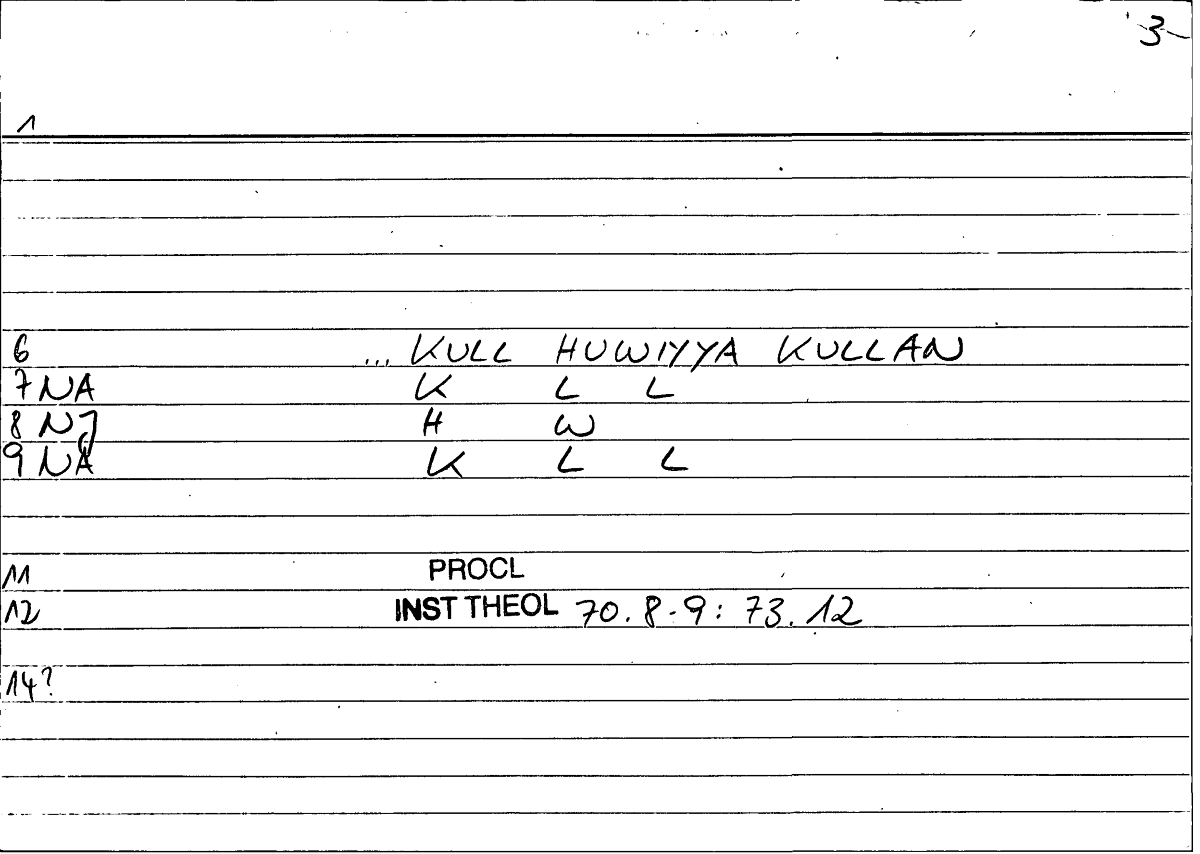 3
1
6 ... KULL HUWIYYA KULLAN
7 NA K L L
8 NJ H W
9 NA K L L
11 PROCL
12 INST THEOL 70.8-9: 73.12
14?